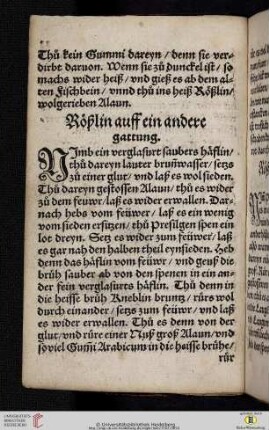 Thů kein Gummi dareyn / denn sie ver-
dirbt daruon. Wenn sie zů dunckel ist / so
machs wider heiß / vnd gieß es ab dem al-
ten Fischbein / vnnd thů ins heiß Rößlin /
wolgerieben Alaun.
Rößlin auff ein andere
gattung.
NImb ein verglasurt saubers häflin /
thů dareyn lauter brunnwasser / setzs
zů einer glut / vnd laß es wol sieden.
Thů dareyn gestossen Alaun / thů es wider
zů dem feuwr / laß es wider erwallen. Dar-
nach hebs vom feüwer / laß es ein wenig
vom sieden ersitzen / thů Presilgen spen ein
lot dreyn. Setz es wider zum feüwer / laß
es gar nah den halben theil eynsieden. Heb
denn das häflin vom feüwr / vnd geuß die
brüh sauber ab von den spenen in ein an-
der fein verglasurts häflin. Thů denn in
die heisse brüh Kneblin bruntz / rürs wol
durch einander / setzs zum feüwr / vnd laß
es wider erwallen. Thů es denn von der
glut / vnd rüre einer Nuß groß Alaun / vnd
souiel Gumi Arabicum in die heisse brühe /
rür
Universitätsbibliothek Heidelberg